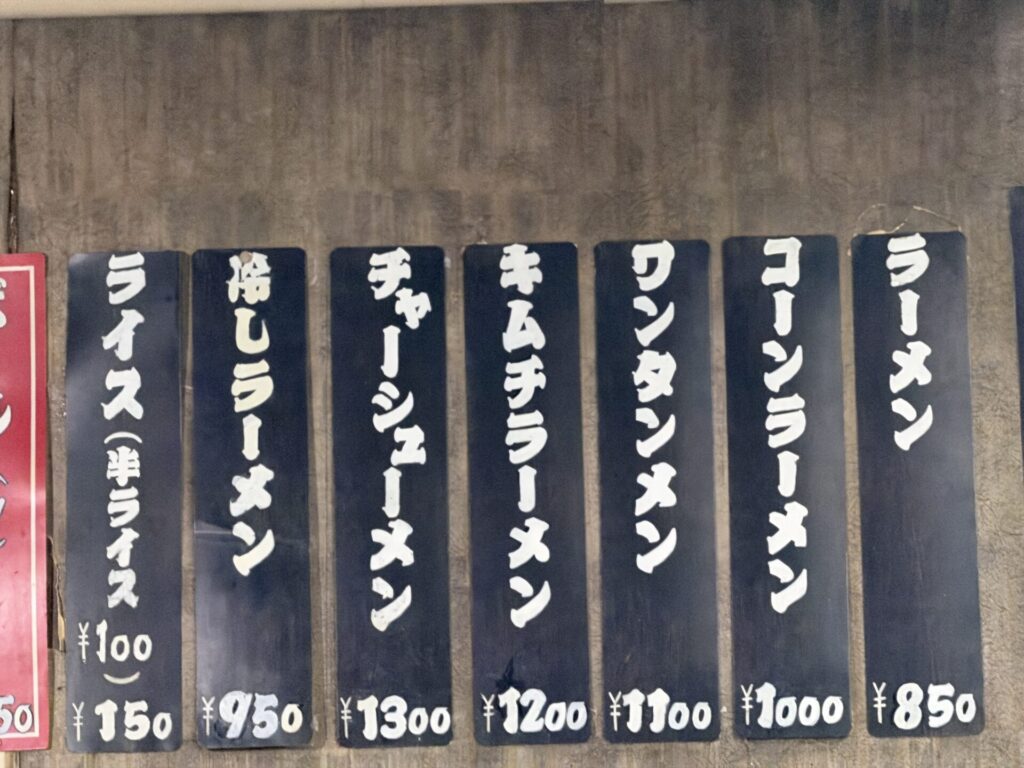 ラーメン
¥850
コーンラーメン
¥1000
ワンタンメン
¥1100
キムチラーメン
¥1200
チャーシューメン
¥1300
冷しラーメン
¥950
ライス(半ライス
¥100)
¥150
50